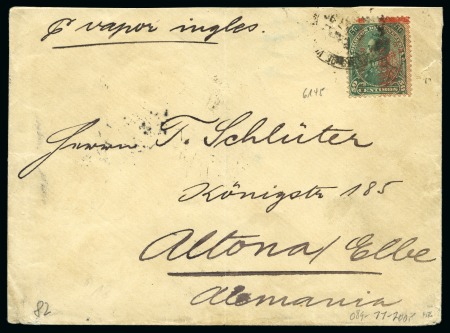 p vapor ingles.
6145
CENTIMOS
Herrn F. Schlüter
Königstr 185
Altona/Elbe
Alemania
82